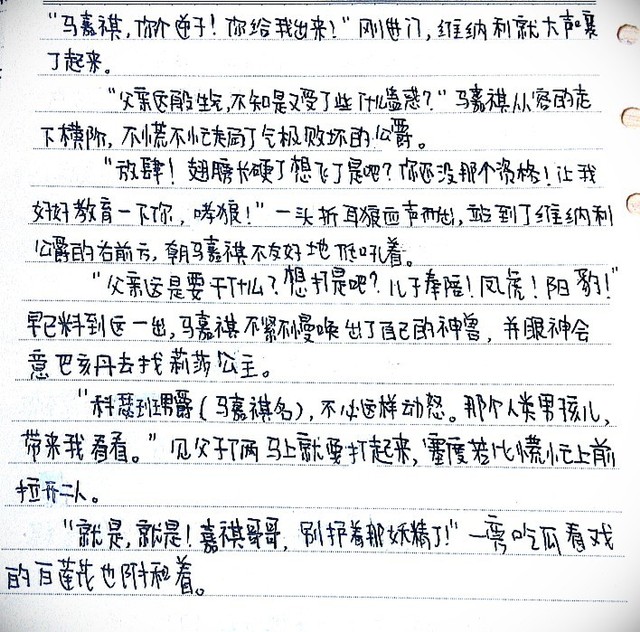 “马嘉祺,你个逆子!你给我出来!”刚进门,维纳利就大声嚷
了起来。
“父亲这般生气,不知是又受了些什么蛊惑?”马嘉祺从容的走
下楼阶,不慌不忙走向了气极败坏的公爵。
“放肆!翅膀长硬了想飞了是吧?你还没那个资格!让我
好好教育一下你,哮狼!”一头折耳狼应声而出,站到了维纳利
公爵的右前方,朝马嘉祺不友好地低吼着。
“父亲这是要干什么?想打是吧?儿子奉陪!风虎!阳豹!”
早已料到这一出,马嘉祺不紧不慢唤出了自己的神兽,并眼神会
意巴亥丹去找莉莎公主。
“科瑟班男爵(马嘉祺名),不必这样动怒。那个人类男孩儿,
带来我看看。”见父子俩马上就要打起来,塞度若比慌忙上前
拉开二人。
“就是,就是!嘉祺哥哥,别护着那妖精了!”一旁吃瓜看戏
的白莲花也附和着。